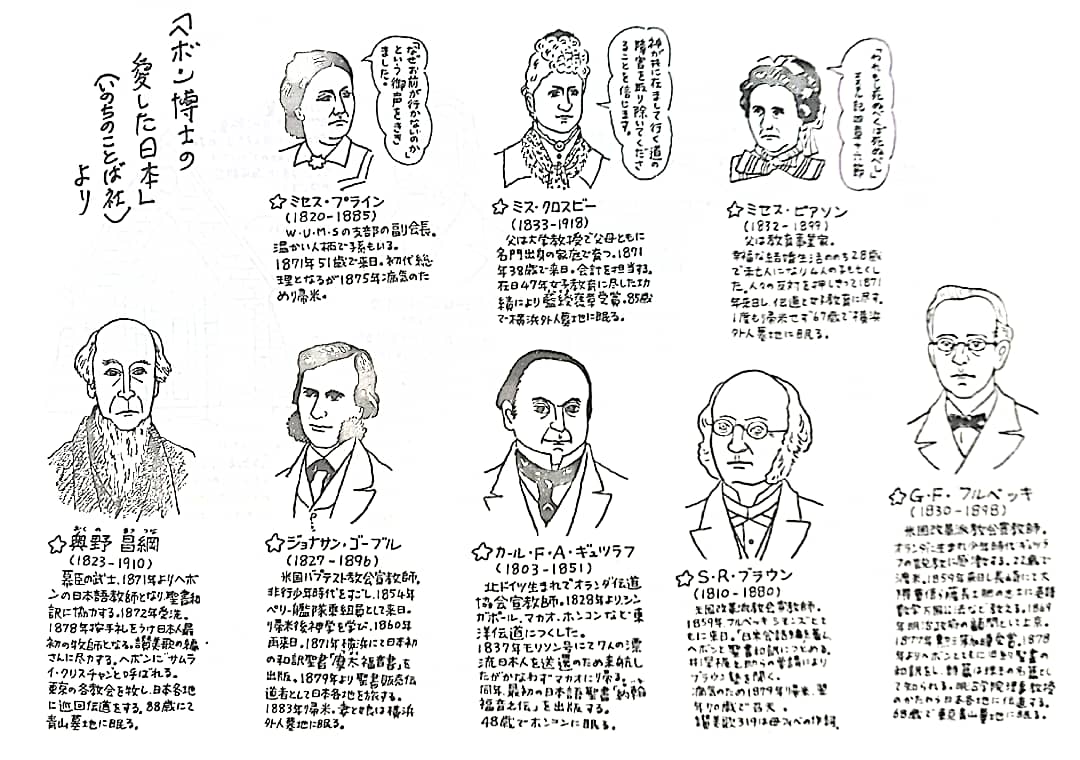 「ヘボン博士の
愛した日本」
(いのちのことば社)
より
「なぜお前が行かないのか」
という御声をきき
ました。
☆ミセス・プライン
(1820-1885)
W・U・M・Sの支部の副会長。
温かい人柄で子系もいる。
1871年51歳で来日。初代総
理となるが1875年病気のた
めり帰米。
神が共に在まして行く道の
障害を取り除いてくださ
ることを信じます。
☆ミス・クロスビー
(1833-1918)
父は大学教授で父母ともに
名門出身の家庭で育つ。1871
年38歳で来日。会計を担当する。
在日47年女子教育に尽した功
績により藍綬褒章受賞。85歳
で横浜外人墓地に眠る。
「われもし死ぬべくば死ぬべし」
四章十六節
☆ミセス・ピアソン
(1832-1899)
父は教育事業家。
幸福な結婚生活ののち28歳
で未亡人になり4人の子も亡くし
た。人々の反対を押しきって1871
年来日し伝道と女子教育に尽す。
1度も帰米せず67歳で横浜
外人墓地に眠る。
☆奥野昌綱
おくの まさつな
(1823-1910)
幕臣の武士。1871年よりヘボ
ンの日本語教師となり、聖書和
訳に協力する。1872年受洗。
1878年按手礼をうけ日本人最
初の牧師となる。讃美歌の編
さんに尽力する。ヘボンに“サムラ
イ・クリスチャン”と呼ばれる。
東京の各教会を牧し、日本各地
に巡回伝道をする。88歳にて
青山墓地に眠る。
☆ジョナサン・ゴーブル
(1827-1896)
米国バプテスト教会宣教師。
非行少年時代をすごし、1854年
ペリー艦隊乗組員として来日。
り帰米後神学を学び、1860年
再来日。1871年横浜にて日本初
の和訳聖書「摩太福音書」を
出版。1879年より聖書販売伝
道者として日本各地を旅する。
1883年り帰米。妻と娘は横浜
外人墓地に眠る。
☆カール・F・A・ギュツラフ
(1803-1851)
北ドイツ生まれでオランダ伝道
協会宣教師。1828年より、シン
ガポール、マカオ、ホンコンなどで東
洋伝道につくした。
1837年モリソン号にて7人の漂
流日本人を送還のため来航し
たがかなわずマカオにり帰る。
同年、最初の日本語聖書「約翰
福音之伝」を出版する。
48歳でホンコンに眠る。
☆S・R・ブラウン
(1810-1880)
米国改革派教会宣教師。
1859年フルベッキ シモンズととも
に来日。「日本会話」を著し
ヘボンと聖書和訳につとめる。
ブラウン塾を開く。
病気のため1879年り帰米。翌
年70歳で召天。
讃美歌319は母フィベの作詞。
☆G・F・フルベッキ
(1830-1898)
米国改革派教会宣教師。
オランダに生まれ少年時代ギュツラ
フの説教に感激する。22歳で
渡米。1859年来日し長崎にて大
隈重信ら
数学万国公法など教える。1869
年明治政府の顧問として上京。
1877年勲三等旭日章受賞。1878
年よりヘボンとともに旧約聖書
の和訳をし、詩篇は
て知られる。明治学院理事教授
のかたわら日本各地に伝道する。
68歳で東京青山墓地に眠る。